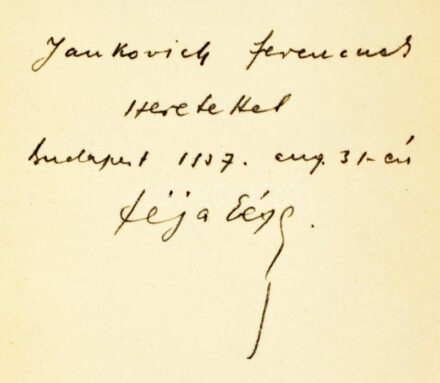 Jankovich Ferencnek
szeretettel
Budapest 1937. aug. 31-én
Féja Géza.